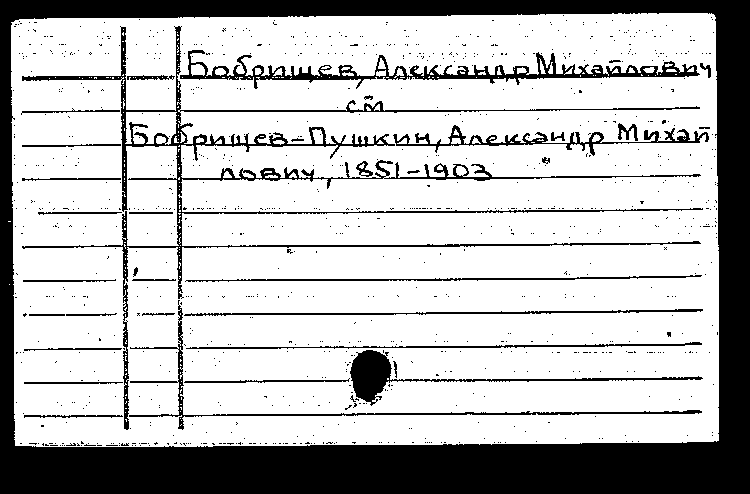 Бобрищев, Александр Михайлович
см
Бобрищев-Пушкин, Александр Михай
лович, 1851-1903